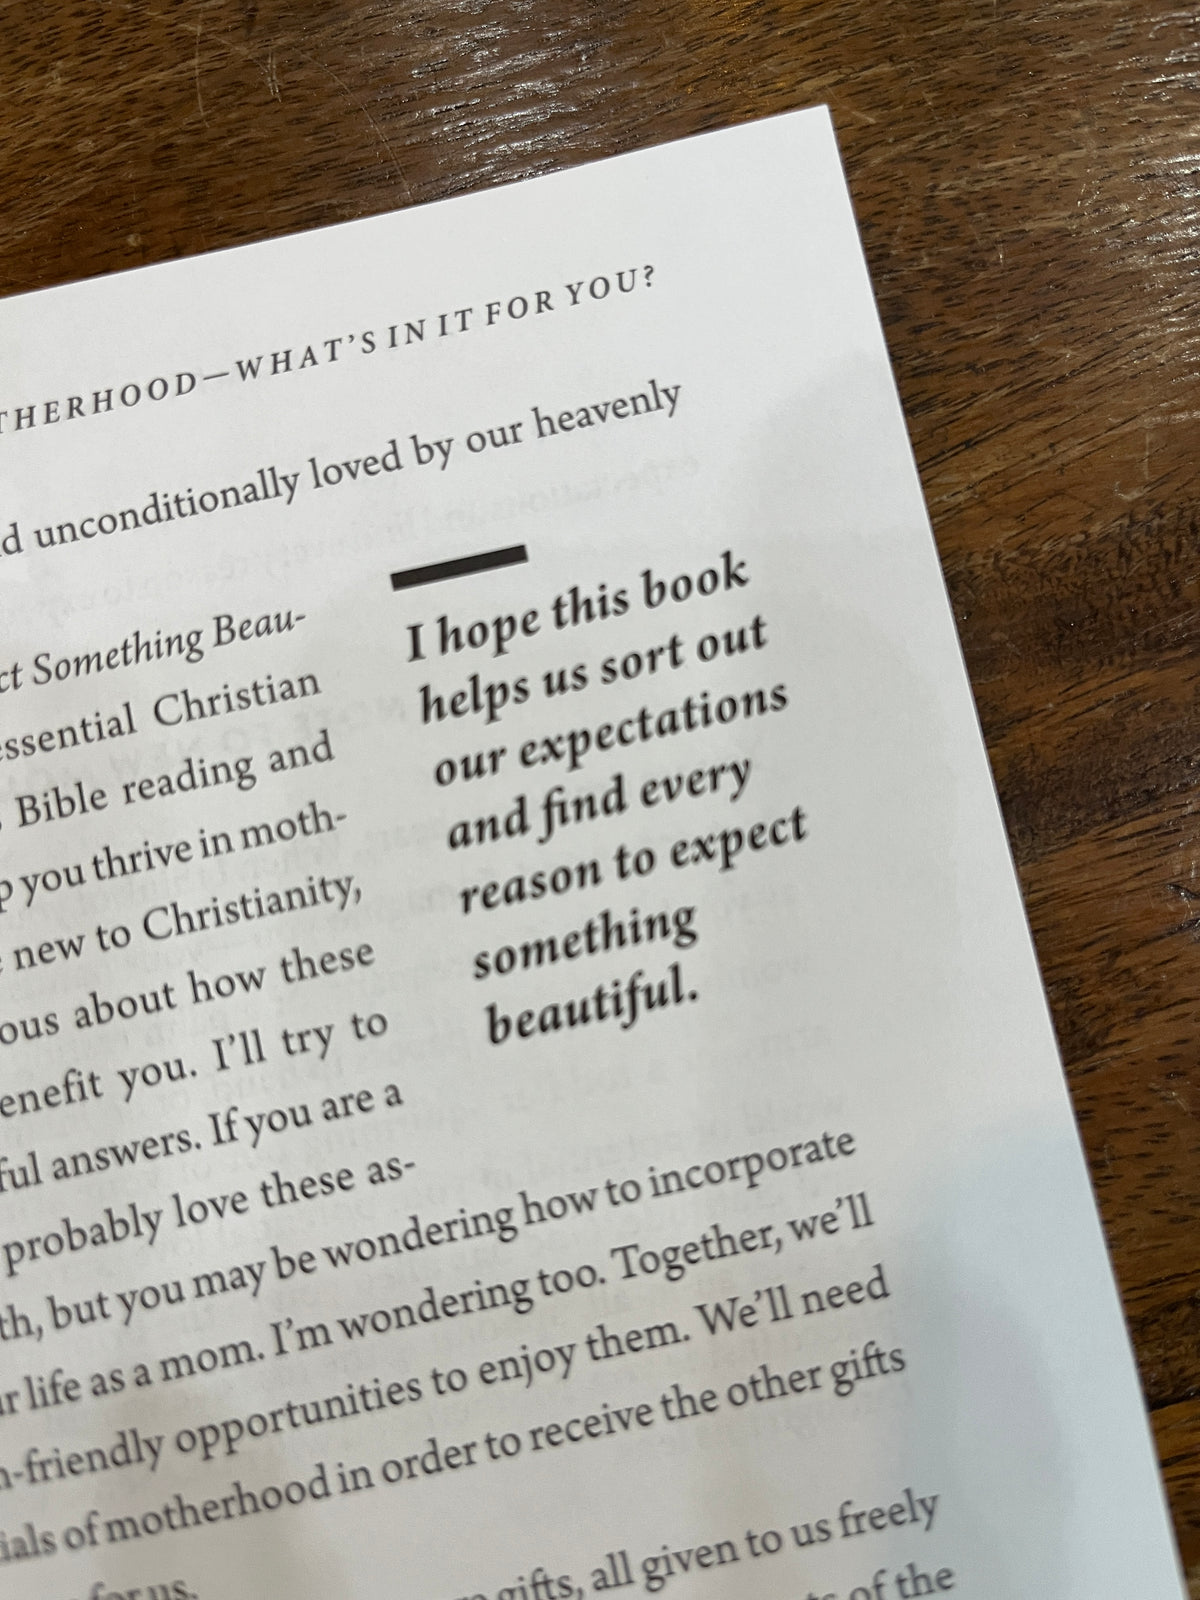 THERHOOD—WHAT'S IN IT FOR YOU?
d unconditionally loved by our heavenly
ct Something Beau-
essential Christian
Bible reading and
p you thrive in moth-
new to Christianity,
ous about how these
enefit you. I'll try to
ful answers. If you are a
probably love these as-
th, but you may be wondering how to incorporate
r life as a mom. I'm wondering too. Together, we'll
-friendly opportunities to enjoy them. We'll need
ials of motherhood in order to receive the other gifts
for us.
gifts, all given to us freely
of the
I hope this book
helps us sort out
our expectations
and find every
reason to expect
something
beautiful.